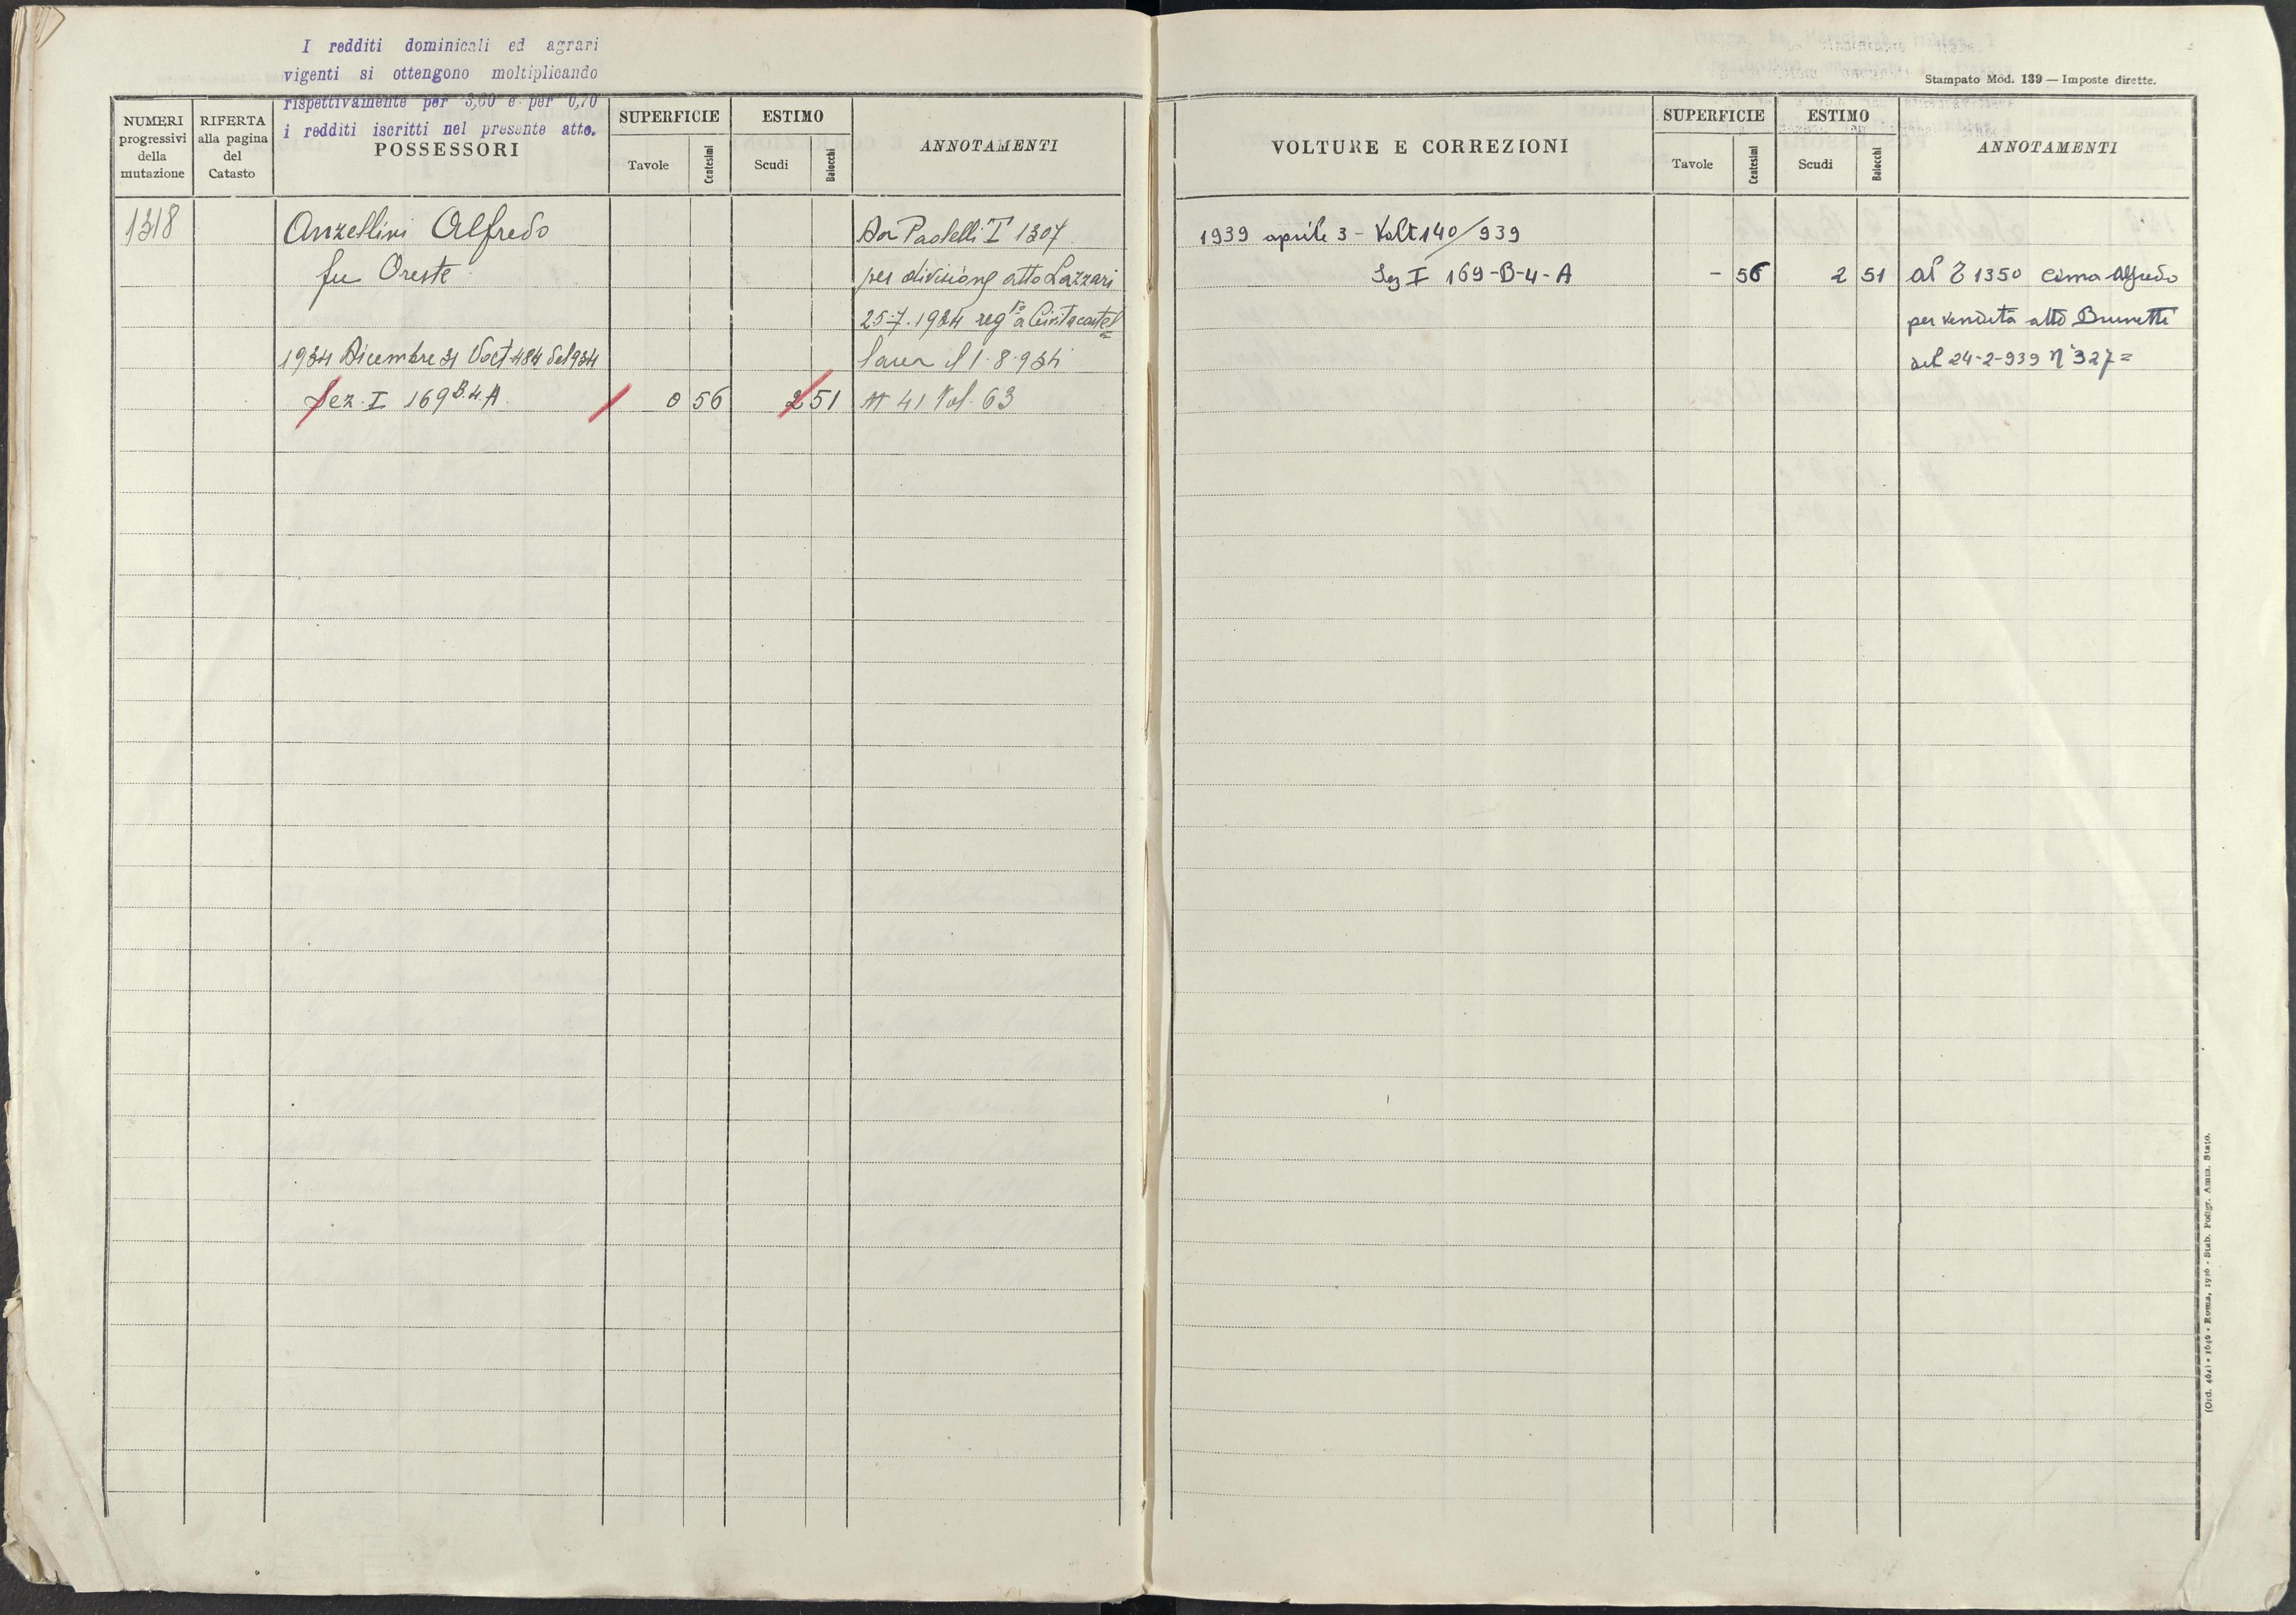 I redditi dominicali ed agrari
vigenti si ottengono moltiplicando
rispettivamente per 3,60 e per 0,70
i redditi iscritti nel presente atto.
NUMERI progressivi della mutazione
RIFERTA alla pagina del Catasto
POSSESSORI
SUPERFICIE
Tavole
Centesimi
ESTIMO
Scudi
Baiocchi
ANNOTAMENTI
1318
Anzellini Alfredo
fu Oreste
1934 Dicembre 31 Volt. 484 del 934
Sez. I 169 B.4.A.
0 56
2 51
Da Paolelli T 1307
per divisione atto Lazzari
25.7.1934 reg.to a Civitacastel
lana il 1.8.934
N 41 Vol. 63
Stampato Mod. 139 — Imposte dirette.
VOLTURE E CORREZIONI
SUPERFICIE
Tavole
Centesimi
ESTIMO
Scudi
Baiocchi
ANNOTAMENTI
1939 aprile 3 - Volt 140/939
Sez I 169-B-4-A
- 56
2 51
al T 1350 Cima Alfredo
per vendita atto Brunetti
del 24-2-939 N° 327 =